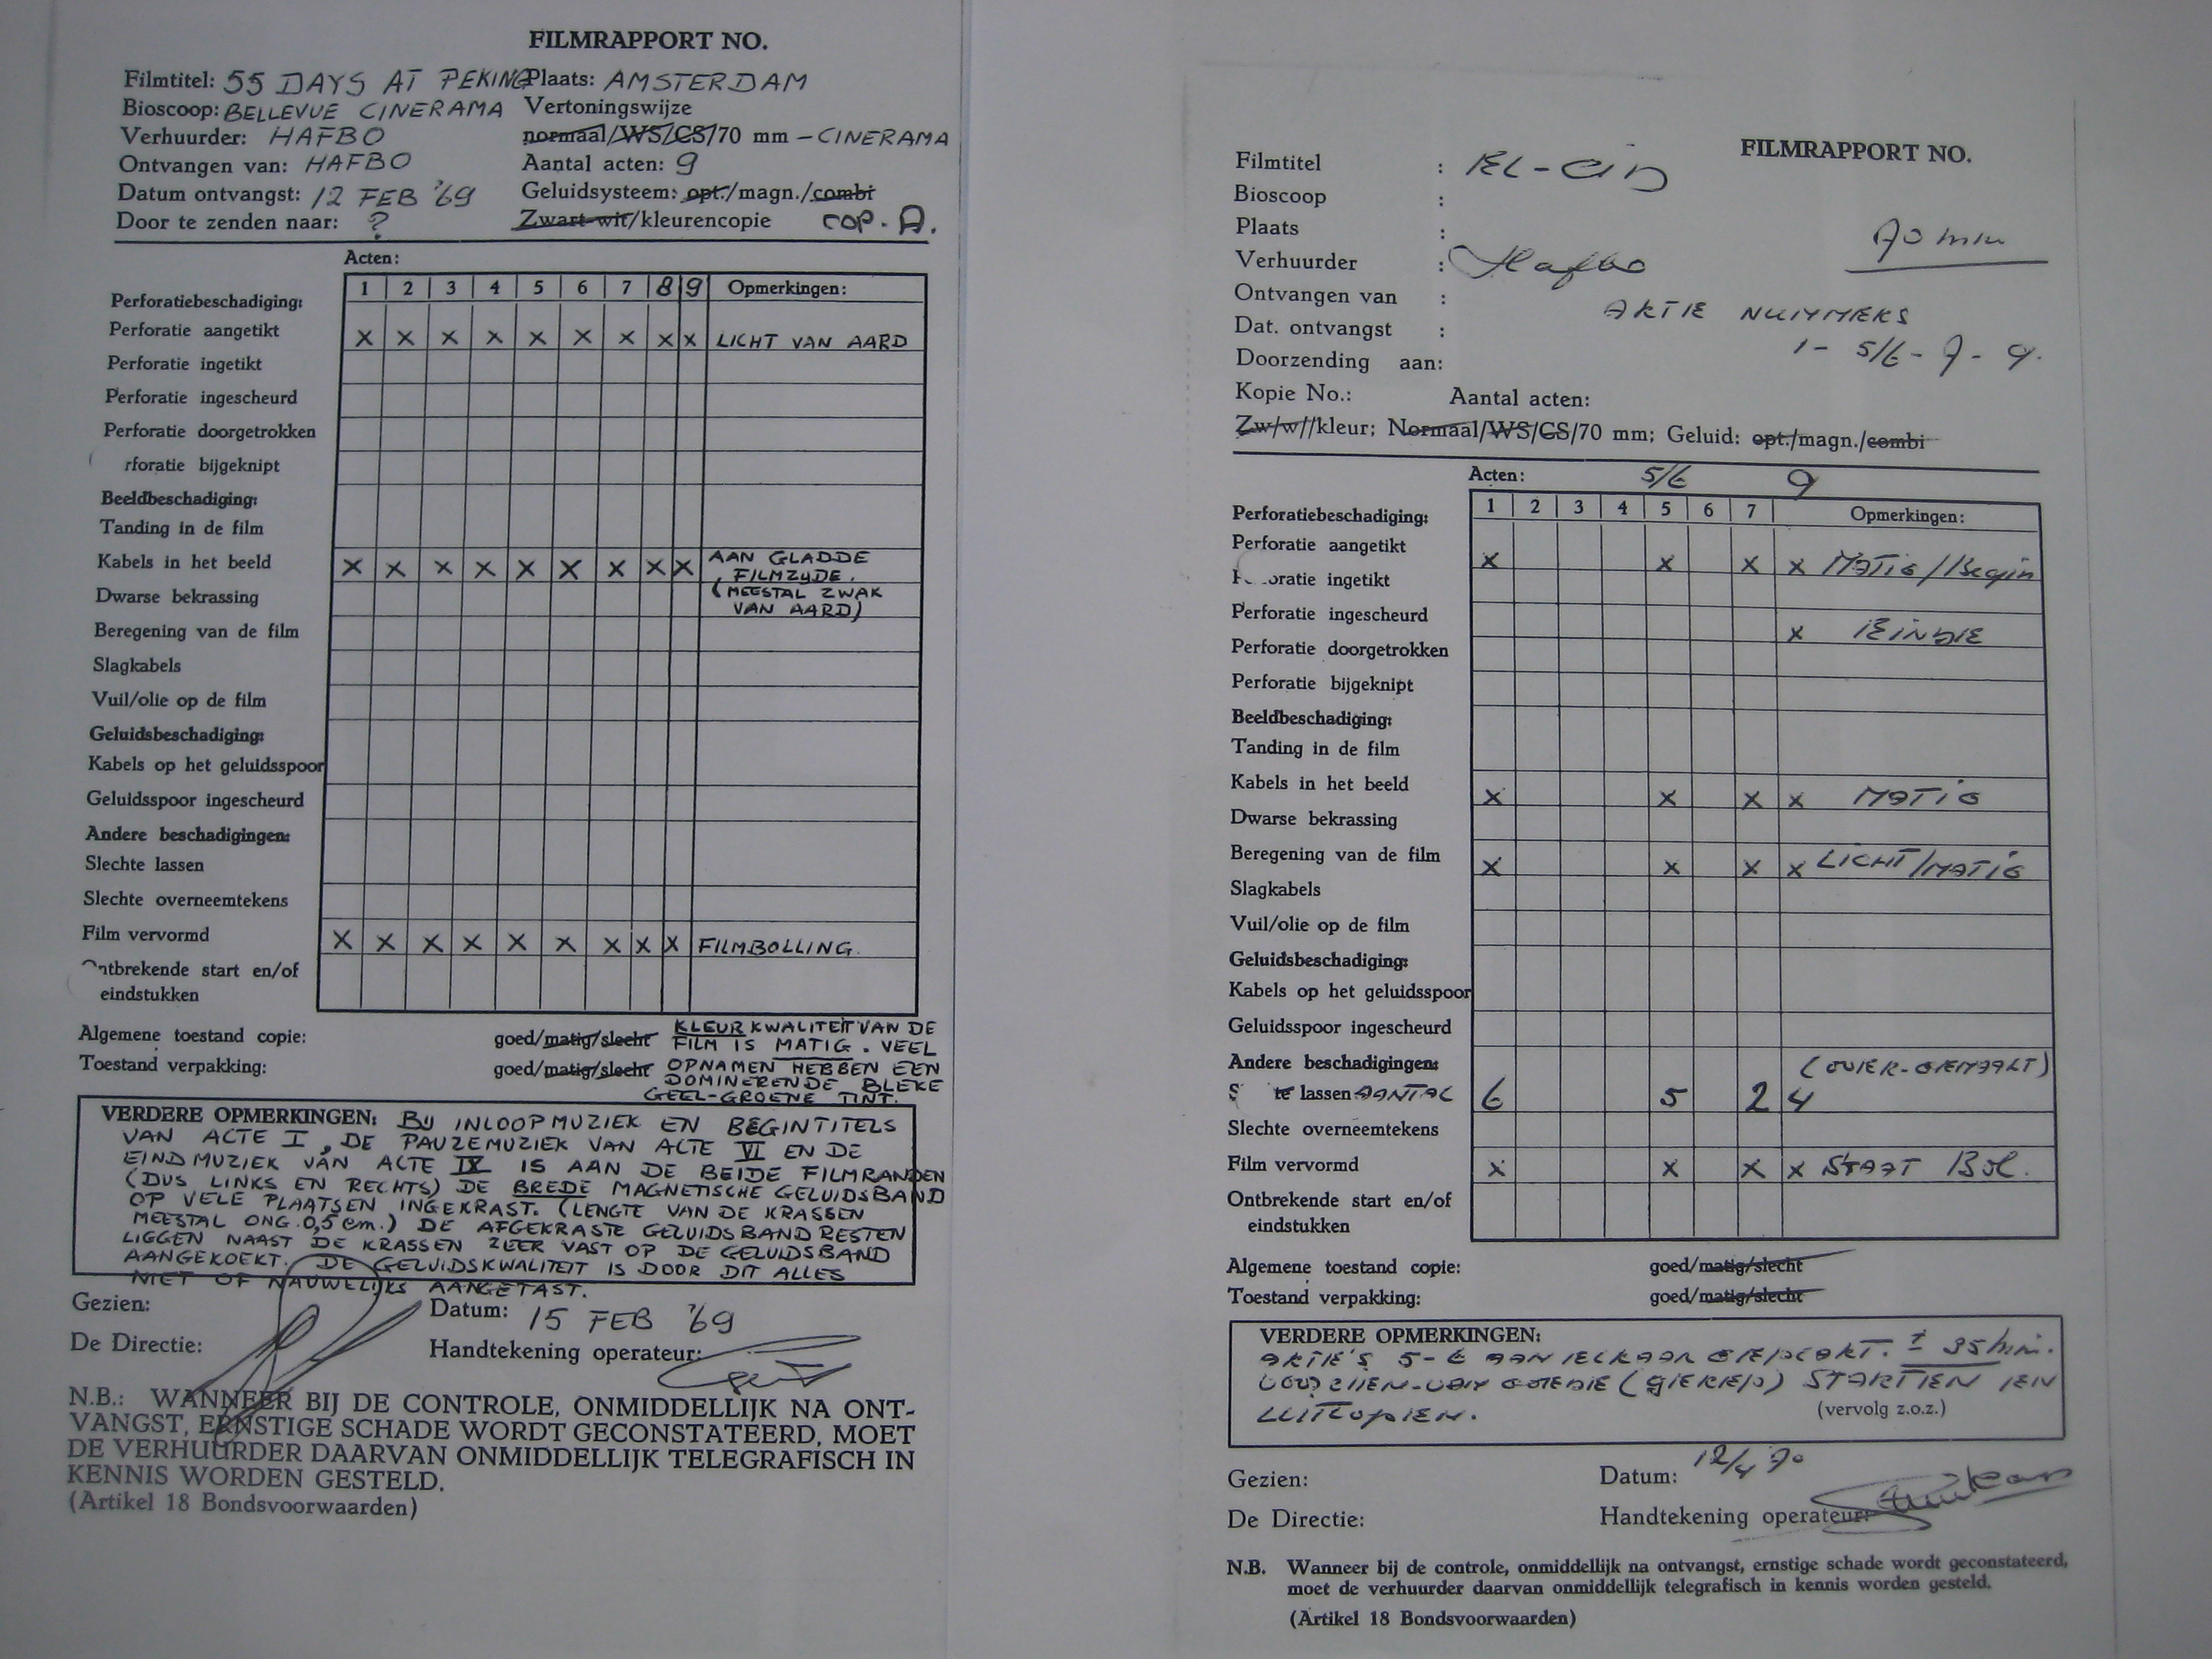 FILMRAPPORT NO.
Filmtitel: 55 DAYS AT PEKING Plaats: AMSTERDAM
Bioscoop: BELLEVUE CINERAMA Vertoningswijze
Verhuurder: HAFBO normaal/WS/CS/70 mm - CINERAMA
Ontvangen van: HAFBO Aantal acten: 9
Datum ontvangst: 12 FEB '69 Geluidsysteem: opt./magn./combi
Door te zenden naar: ? Zwart-wit/kleurencopie COP. A.
Acten:
1 2 3 4 5 6 7 8 9 Opmerkingen:
Perforatiebeschadiging:
Perforatie aangetikt X X X X X X X X X LICHT VAN AARD
Perforatie ingetikt
Perforatie ingescheurd
Perforatie doorgetrokken
rforatie bijgeknipt
Beeldbeschadiging:
Tanding in de film
Kabels in het beeld X X X X X X X X X AAN GLADDE
FILMZYDE.
Dwarse bekrassing (MEESTAL ZWAK
VAN AARD)
Beregening van de film
Slagkabels
Vuil/olie op de film
Geluidsbeschadiging:
Kabels op het geluidsspoor
Geluidsspoor ingescheurd
Andere beschadigingen:
Slechte lassen
Slechte overneemtekens
Film vervormd X X X X X X X X X FILMBOLLING.
ntbrekende start en/of
eindstukken
Algemene toestand copie: goed/matig/slecht KLEURKWALITEIT VAN DE
FILM IS MATIG. VEEL
Toestand verpakking: goed/matig/slecht OPNAMEN HEBBEN EEN
DOMINERENDE BLEKE
GEEL-GROENE TINT.
VERDERE OPMERKINGEN: BY INLOOPMUZIEK EN BEGINTITELS
VAN ACTE I, DE PAUZEMUZIEK VAN ACTE VI EN DE
EINDMUZIEK VAN ACTE IX IS AAN DE BEIDE FILMRANDEN
(DUS LINKS EN RECHTS) DE BREDE MAGNETISCHE GELUIDSBAND
OP VELE PLAATSEN INGEKRAST. (LENGTE VAN DE KRASSEN
MEESTAL ONG. 0,5 cm.) DE AFGEKRASTE GELUIDSBANDRESTEN
LIGGEN NAAST DE KRASSEN ZEER VAST OP DE GELUIDSBAND
AANGEKOEKT. DE GELUIDSKWALITEIT IS DOOR DIT ALLES
NIET OF NAUWELIJKS AANGETAST.
Gezien: Datum: 15 FEB '69
De Directie: Handtekening operateur:
N.B.: WANNEER BIJ DE CONTROLE, ONMIDDELLIJK NA ONT-
VANGST, ERNSTIGE SCHADE WORDT GECONSTATEERD, MOET
DE VERHUURDER DAARVAN ONMIDDELLIJK TELEGRAFISCH IN
KENNIS WORDEN GESTELD.
(Artikel 18 Bondsvoorwaarden)
FILMRAPPORT NO.
Filmtitel : EL-CID
Bioscoop :
Plaats : 70 mm
Verhuurder : Hafbo
Ontvangen van : AKTIE NUMMERS
Dat. ontvangst : 1- 5/6- 7- 9.
Doorzending aan:
Kopie No.: Aantal acten:
Zw/w//kleur; Normaal/WS/CS/70 mm; Geluid: opt./magn./combi
Acten: 5/6 9
1 2 3 4 5 6 7 Opmerkingen:
Perforatiebeschadiging:
Perforatie aangetikt X X X X MATIG/Begin
oratie ingetikt
Perforatie ingescheurd X EINDE
Perforatie doorgetrokken
Perforatie bijgeknipt
Beeldbeschadiging:
Tanding in de film
Kabels in het beeld X X X X MATIG
Dwarse bekrassing
Beregening van de film X X X X LICHT/MATIG
Slagkabels
Vuil/olie op de film
Geluidsbeschadiging:
Kabels op het geluidsspoor
Geluidsspoor ingescheurd
Andere beschadigingen: (OVER-GEMAAKT)
S te lassen AANTAL 6 5 2 4
Slechte overneemtekens
Film vervormd X X X X STAAT BOL.
Ontbrekende start en/of
eindstukken
Algemene toestand copie: goed/matig/slecht
Toestand verpakking: goed/matig/slecht
VERDERE OPMERKINGEN:
AKTIE'S 5-6 AAN ELKAAR GEPLAKT. ± 35 min.
VOORZIEN-VAN GOEDE STARTEN EN
UITLOPEN. (vervolg z.o.z.)
Gezien: Datum: 12/4 70
De Directie: Handtekening operateur:
N.B. Wanneer bij de controle, onmiddellijk na ontvangst, ernstige schade wordt geconstateerd,
moet de verhuurder daarvan onmiddellijk telegrafisch in kennis worden gesteld.
(Artikel 18 Bondsvoorwaarden)